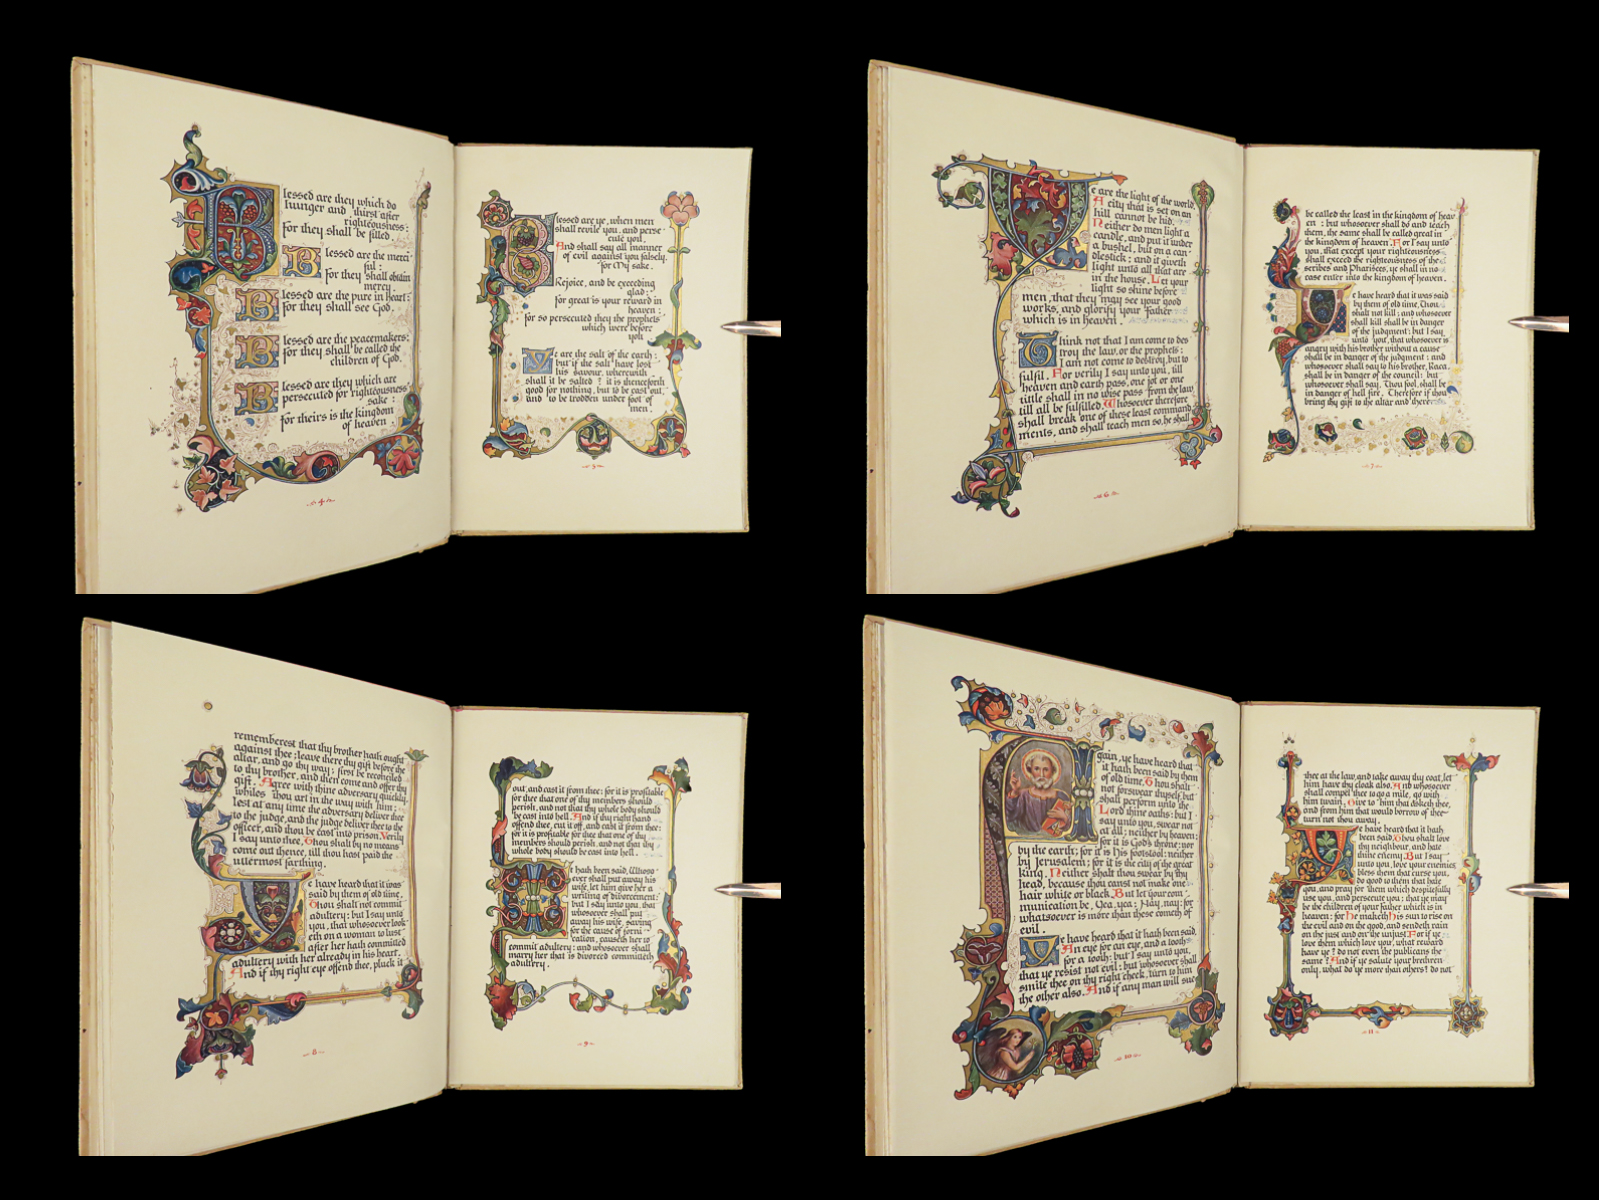 Blessed are they which do
hunger and thirst after
righteousness:
for they shall be filled.
Blessed are the merci
ful:
for they shall obtain
mercy.
Blessed are the pure in heart:
for they shall see God.
Blessed are the peacemakers:
for they shall be called the
children of God.
Blessed are they which are
persecuted for righteousness
sake:
for theirs is the kingdom
of heaven.
4
Blessed are ye, when men
shall revile you, and perse
cute you,
And shall say all manner
of evil against you falsely,
for My sake.
Rejoice, and be exceeding
glad:
for great is your reward in
heaven:
for so persecuted they the prophets
which were before
you.
Ye are the salt of the earth:
but if the salt have lost
his savour, wherewith
shall it be salted? it is thenceforth
good for nothing, but to be cast out,
and to be trodden under foot of
men.
5
Ye are the light of the world.
A city that is set on an
hill cannot be hid.
Neither do men light a
candle, and put it under
a bushel, but on a can
dlestick: and it giveth
light unto all that are
in the house. Let your
light so shine before
men, that they may see your good
works, and glorify your Father
which is in heaven.
Think not that I am come to des
troy the law, or the prophets:
I am not come to destroy, but to
fulfil. For verily I say unto you, till
heaven and earth pass, one jot or one
tittle shall in no wise pass from the law,
till all be fulfilled. Whosoever therefore
shall break one of these least command
ments, and shall teach men so, he shall
6
be called the least in the kingdom of heav
en: but whosoever shall do and teach
them, the same shall be called great in
the kingdom of heaven. For I say unto
you, that except your righteousness
shall exceed the righteousness of the
scribes and Pharisees, ye shall in no
case enter into the kingdom of heaven.
Ye have heard that it was said
by them of old time, Thou
shalt not kill: and whosoever
shall kill shall be in danger
of the judgment: but I say
unto you, that whosoever is
angry with his brother without a cause
shall be in danger of the judgment: and
whosoever shall say to his brother, Raca,
shall be in danger of the council: but
whosoever shall say, Thou fool, shall be
in danger of hell fire. Therefore if thou
bring thy gift to the altar and there
7
rememberest that thy brother hath ought
against thee; leave there thy gift before the
altar, and go thy way; first be reconciled
to thy brother, and then come and offer thy
gift. Agree with thine adversary quickly,
whiles thou art in the way with him;
lest at any time the adversary deliver thee
to the judge, and the judge deliver thee to the
officer, and thou be cast into prison. Verily
I say unto thee, Thou shalt by no means
come out thence, till thou hast paid the
uttermost farthing.
Ye have heard that it was
said by them of old time,
Thou shalt not commit
adultery: but I say unto
you, that whosoever look
eth on a woman to lust
after her hath committed
adultery with her already in his heart.
And if thy right eye offend thee, pluck it
8
out, and cast it from thee: for it is profitable
for thee that one of thy members should
perish, and not that thy whole body should
be cast into hell. And if thy right hand
offend thee, cut it off, and cast it from thee:
for it is profitable for thee that one of thy
members should perish, and not that thy
whole body should be cast into hell.
It hath been said, Whoso
ever shall put away his
wife, let him give her a
writing of divorcement:
but I say unto you, that
whosoever shall put
away his wife, saving
for the cause of forni
cation, causeth her to
commit adultery: and whosoever shall
marry her that is divorced committeth
adultery.
9
Again, ye have heard that
it hath been said by them
of old time, Thou shalt
not forswear thyself, but
shalt perform unto the
Lord thine oaths: but I
say unto you, swear not
at all; neither by heaven;
for it is God's throne: nor
by the earth; for it is His footstool: neither
by Jerusalem; for it is the city of the great
King. Neither shalt thou swear by thy
head, because thou canst not make one
hair white or black. But let your com
munication be, Yea, yea; Nay, nay: for
whatsoever is more than these cometh of
evil.
Ye have heard that it hath been said,
An eye for an eye, and a tooth
for a tooth: but I say unto you,
that ye resist not evil: but whosoever shall
smite thee on thy right cheek, turn to him
the other also. And if any man will sue
10
thee at the law, and take away thy coat, let
him have thy cloak also. And whosoever
shall compel thee to go a mile, go with
him twain. Give to him that asketh thee,
and from him that would borrow of thee
turn not thou away.
Ye have heard that it hath
been said, Thou shalt love
thy neighbour, and hate
thine enemy. But I say
unto you, love your enemies,
bless them that curse you,
do good to them that hate
you, and pray for them which despitefully
use you, and persecute you; that ye may
be the children of your Father which is in
heaven: for He maketh His sun to rise on
the evil and on the good, and sendeth rain
on the just and on the unjust. For if ye
love them which love you, what reward
have ye? do not even the publicans the
same? And if ye salute your brethren
only, what do ye more than others? do not
11